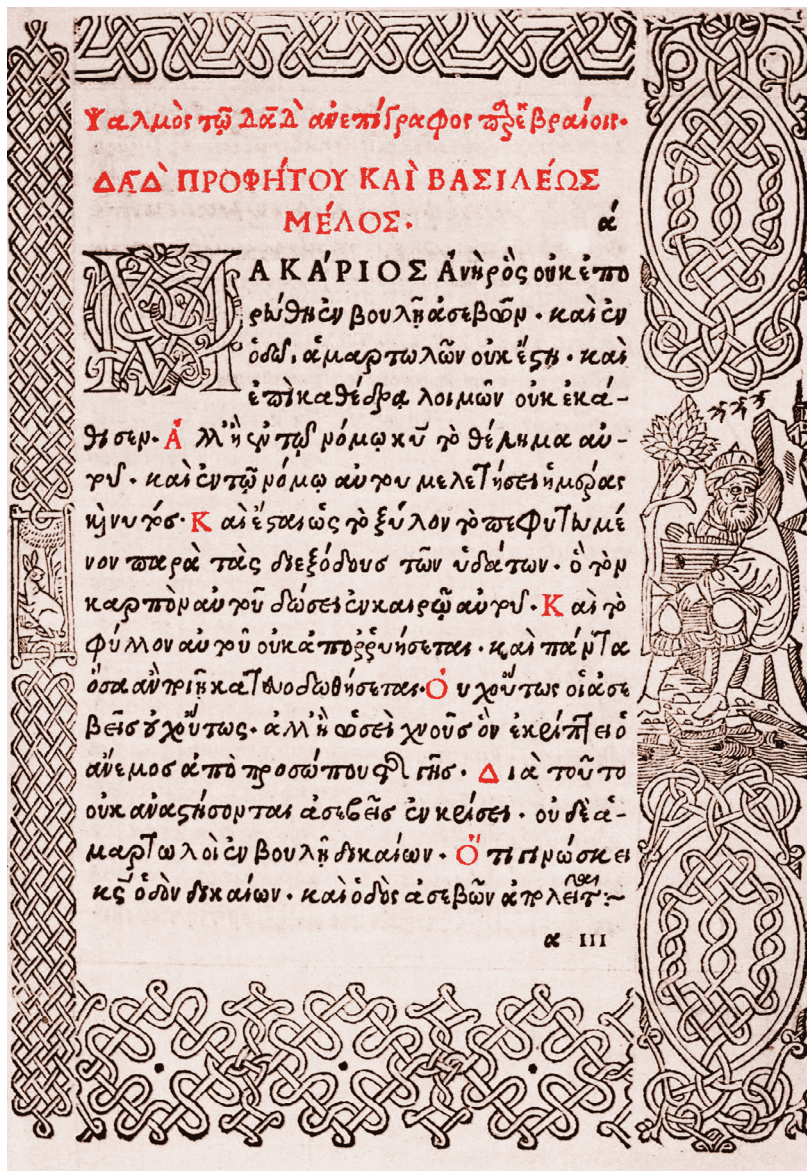 Ψαλμὸς τῷ Δαδ̀ ἀνεπίγραφος παρ' ἑβραίοις·
ΔΑΔ̀ ΠΡΟΦΉΤΟΥ ΚΑῚ ΒΑΣΙΛΈΩΣ
ΜΈΛΟΣ· ά
ΜΑΚΆΡΙΟΣ ἀνὴρ ὃς οὐκ ἐπο
ρεύθη ἐν βουλῇ ἀσεβῶν· καὶ ἐν
ὁδῷ, ἁμαρτωλῶν οὐκ ἔστη· καὶ
ἐπὶ καθέδρα λοιμῶν οὐκ ἐκά-
θισεν· Ἀλλ' ἢ ἐν τῷ νόμῳ κυ̅ τὸ θέλημα αὐ-
τοῦ· καὶ ἐν τῷ νόμῳ αὐτου μελετήσει ἡμέρας
καὶ νυκτός· Καὶ ἔσται ὡς τὸ ξύλον τὸ πεφυτευμέ
νον παρὰ τὰς διεξόδους τῶν ὑδάτων· ὁ τὸν
καρπὸν αὐτοῦ δώσει ἐν καιρῷ αὐτοῦ· Καὶ τὸ
φύλλον αὐτοῦ οὐκ ἀποῤῥυήσεται· καὶ πάντα
ὅσα ἂν ποιῇ κατευοδωθήσεται· Ὀυχ οὕτως οἱ ἀσε
βεῖς οὐχ οὕτως· ἀλλ' ἢ ὡσεὶ χνοῦς ὃν ἐκρίπτει ὁ
ἄνεμος ἀπὸ προσώπου τῆς γῆς· Διὰ τοῦτο
οὐκ ἀναστήσονται ἀσεβεῖς ἐν κρίσει· οὐδὲ ἁ-
μαρτωλοὶ ἐν βουλῇ δικαίων· Ὅτι γινώσκει
κς̅ ὁδὸν δικαίων· καὶ ὁδὸς ἀσεβῶν ἀπολεῖται:~
α III